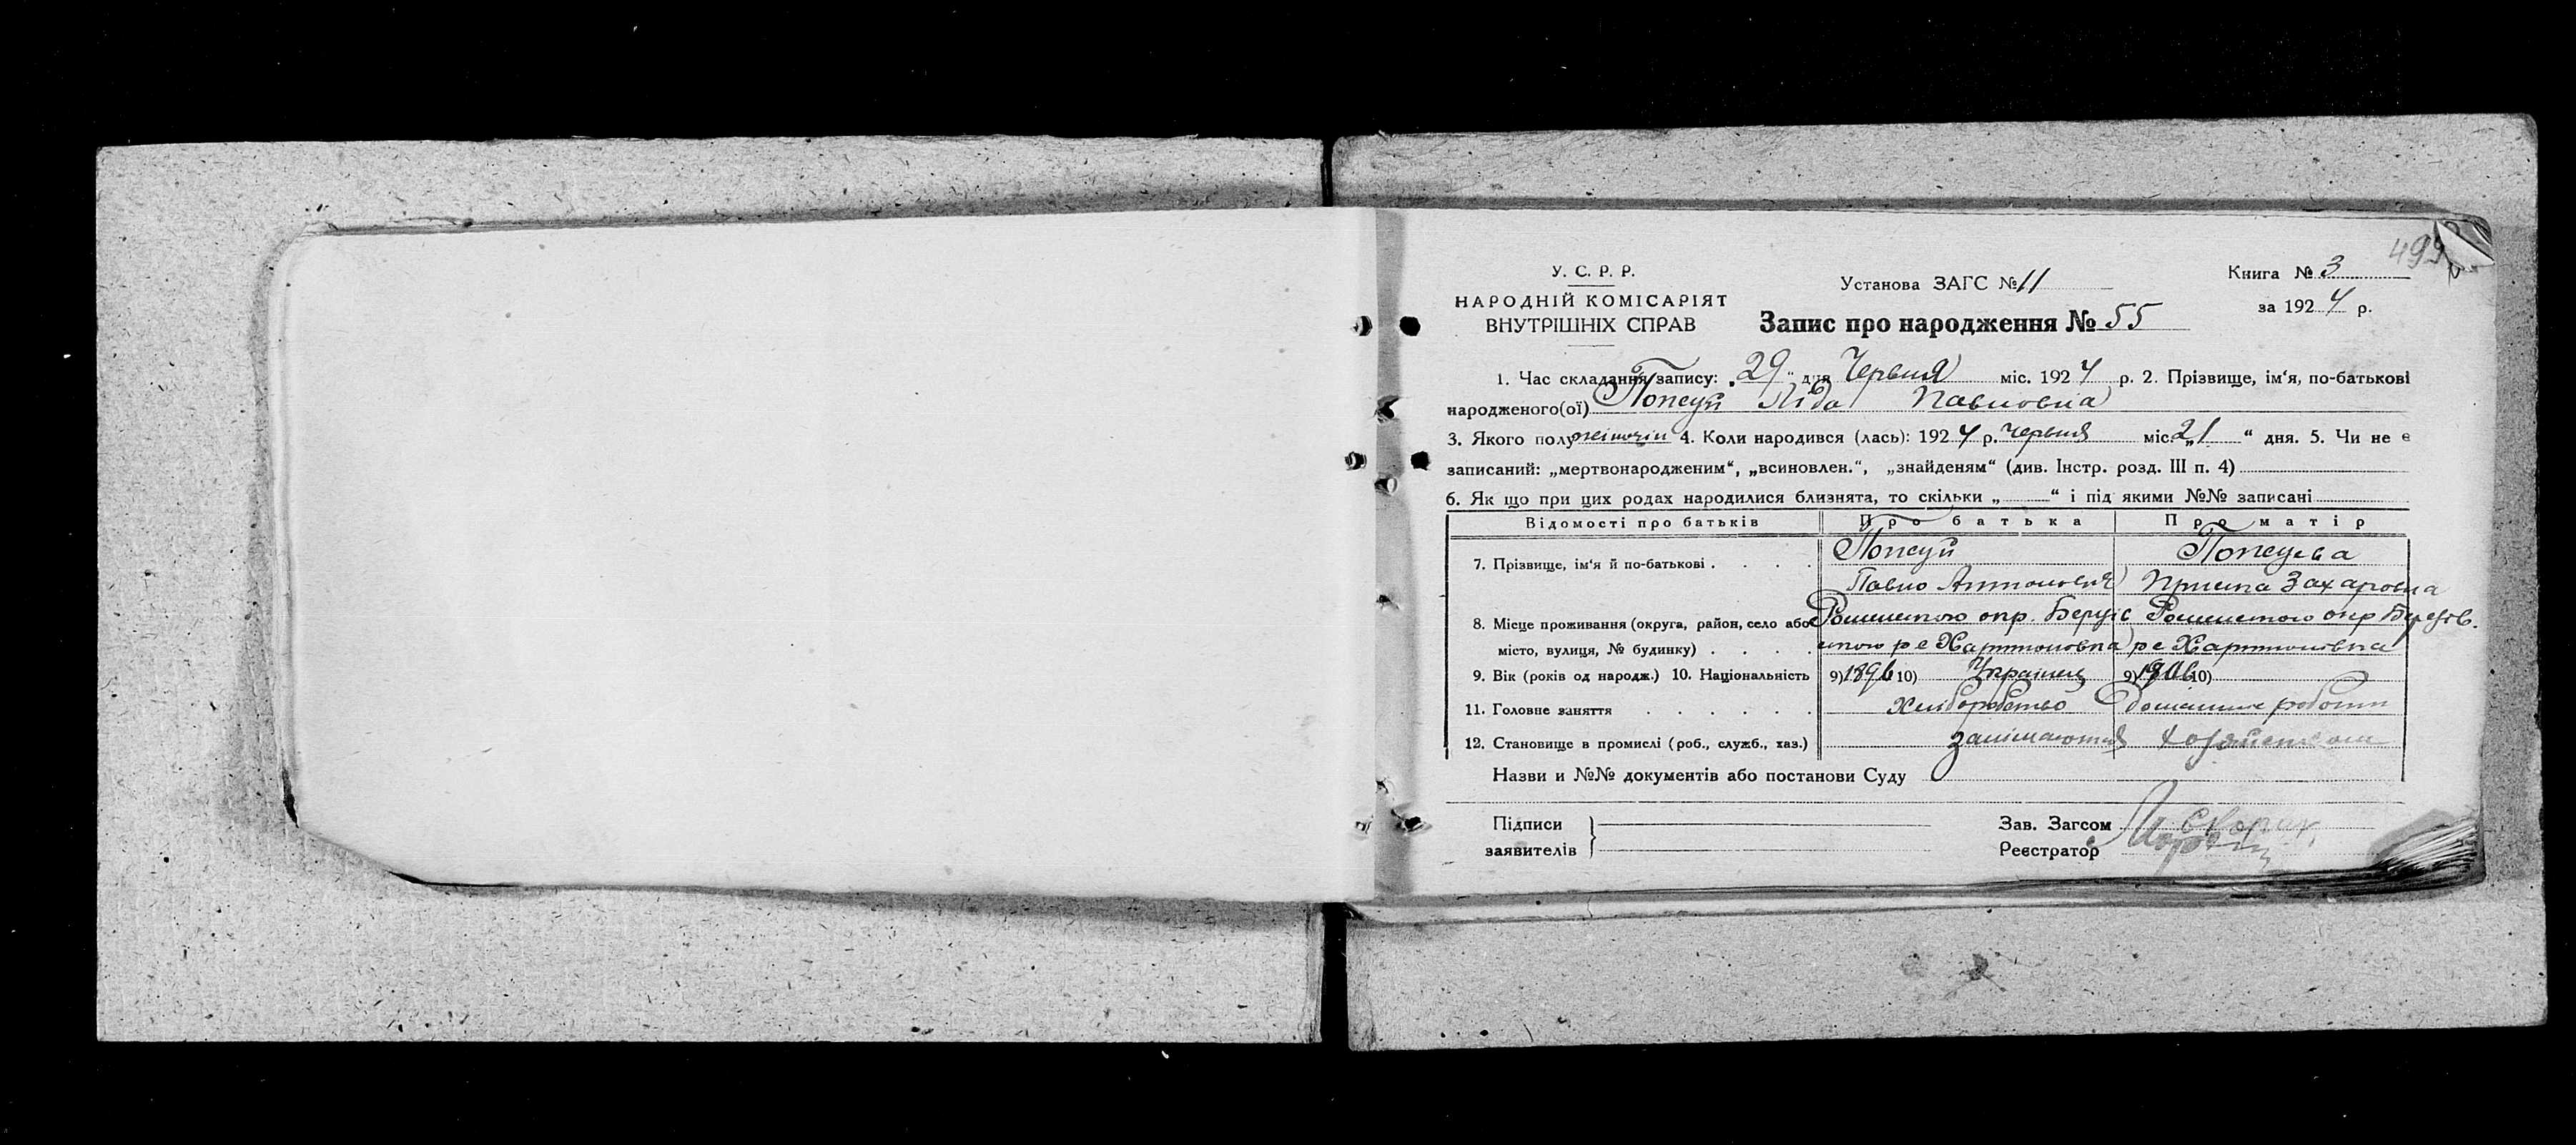 499
У. С. Р. Р.
НАРОДНІЙ КОМІСАРІЯТ
ВНУТРІШНІХ СПРАВ
Установа ЗАГС № 11
Запис про народження № 55
Книга № 3
за 1924 р.
1. Час складання запису: „29“ дня Червня міс. 1924 р. 2. Прізвище, ім‘я, по-батькові
народженого(ої) Попсуй Ліда Павловна
3. Якого полу жіночій 4. Коли народився (лась): 1924 р. Червня міс. „21“ дня. 5. Чи не є
записаний: „мертвонародженим“, „всиновлен.“, „знайденям“ (див. Інстр. розд. III п. 4)
6. Як що при цих родах народилися близнята, то скільки „ “ і під якими №№ записані
Відомості про батьків Про батька Про матір
7. Прізвище, ім‘я й по-батькові Попсуй Попсуєва
Павло Антонович Захаровна
8. Місце проживання (округа, район, село або Роменского окр. Роменского окр
місто, вулиця, № будинку)
9. Вік (років од народж.) 10. Національність 9) 1896 10) Українец 9) 1906 10)
11. Головне заняття Хліборобство домашне роботи
12. Становище в промислі (роб., служб., хаз.) занімаються
Назви и №№ документів або постанови Суду
Підписи
заявителів
Зав. Загсом
Реєстратор